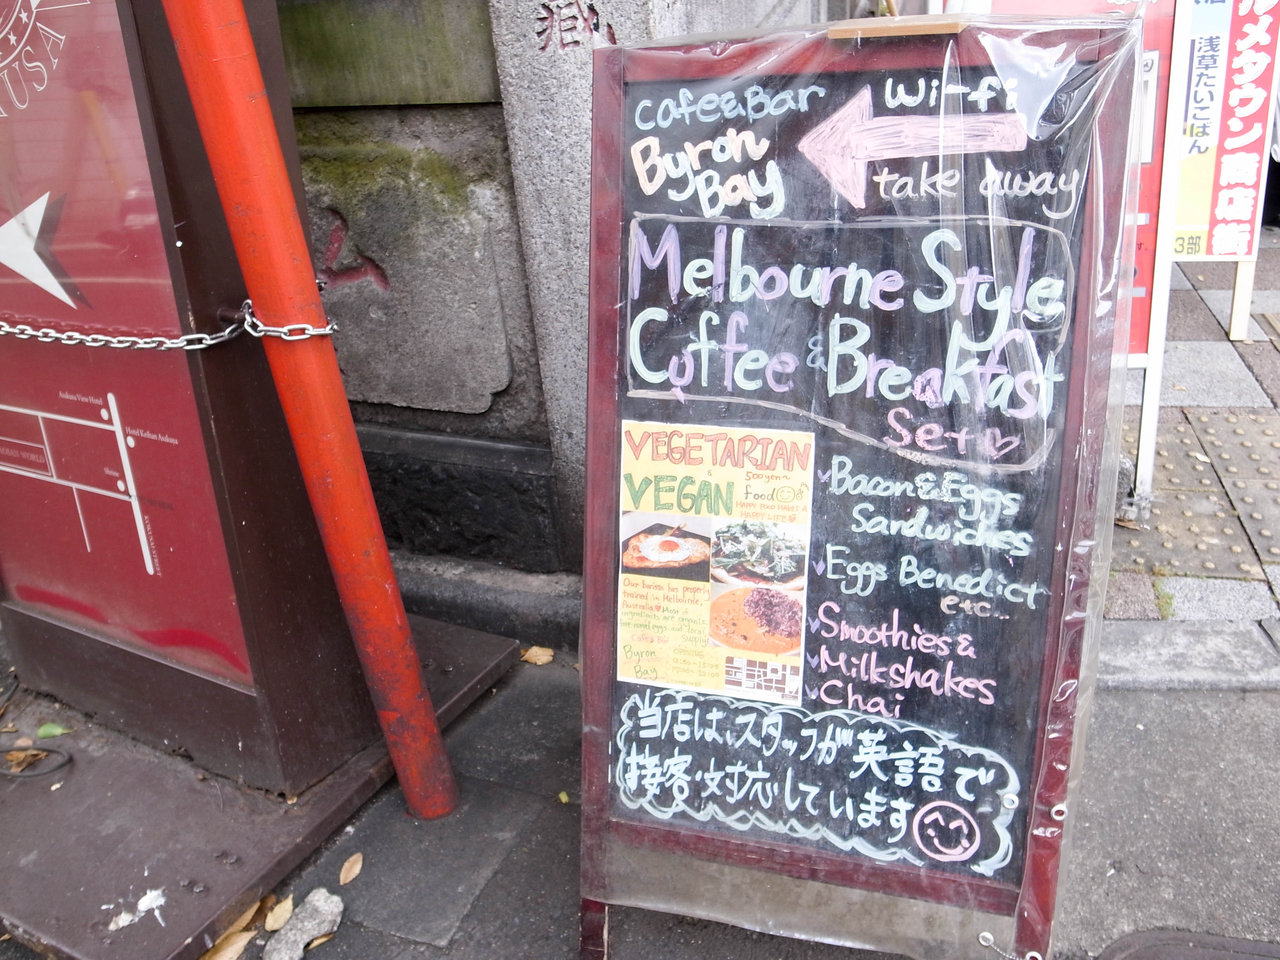 cafe&Bar
Byron
Bay
Wi-fi
take away
Melbourne Style
Coffee & Breakfast
Set
VEGETARIAN
&
VEGAN
500yen~
food
HAPPY FOOD MAKES A
HAPPY LIFE
Our barista has properly
trained in Melbourne,
Australia. Most of
ingredients are organic,
free range eggs and local
supply!
Cafe & Bar
Byron
Bay
OPENING
Bacon & Eggs
Sandwiches
Eggs Benedict
etc...
Smoothies &
Milkshakes
Chai
当店は、スタッフが英語で
接客・対応しています
USA
Asakusa View Hotel
Hotel Keihan Asakusa
浅草たいこばん
3部
メタウン商店街